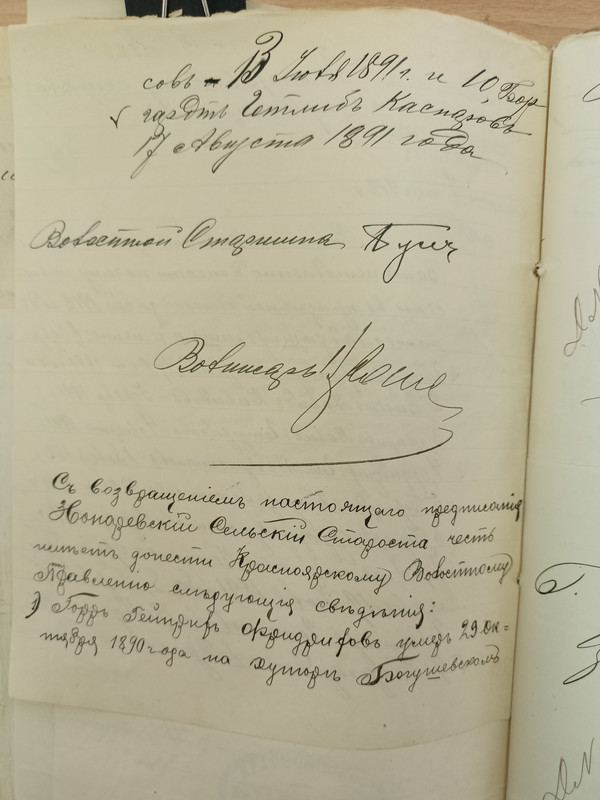 совъ - 13 Іюля 1891 г. и 10, Бор-
гардтъ Готлибъ Каспаровъ
17 Августа 1891 года
Волостной Старшина
Волписарь
Съ возвращеніемъ настоящаго предписанія
Сельскій Староста честь
имѣетъ донести Красноярскому Волостному
Правленію слѣдующія свѣдѣнія:
1) Горръ Гейнрихъ Фридриховъ умеръ 29 Ок=
тября 1890 года на хуторѣ Богушевскомъ